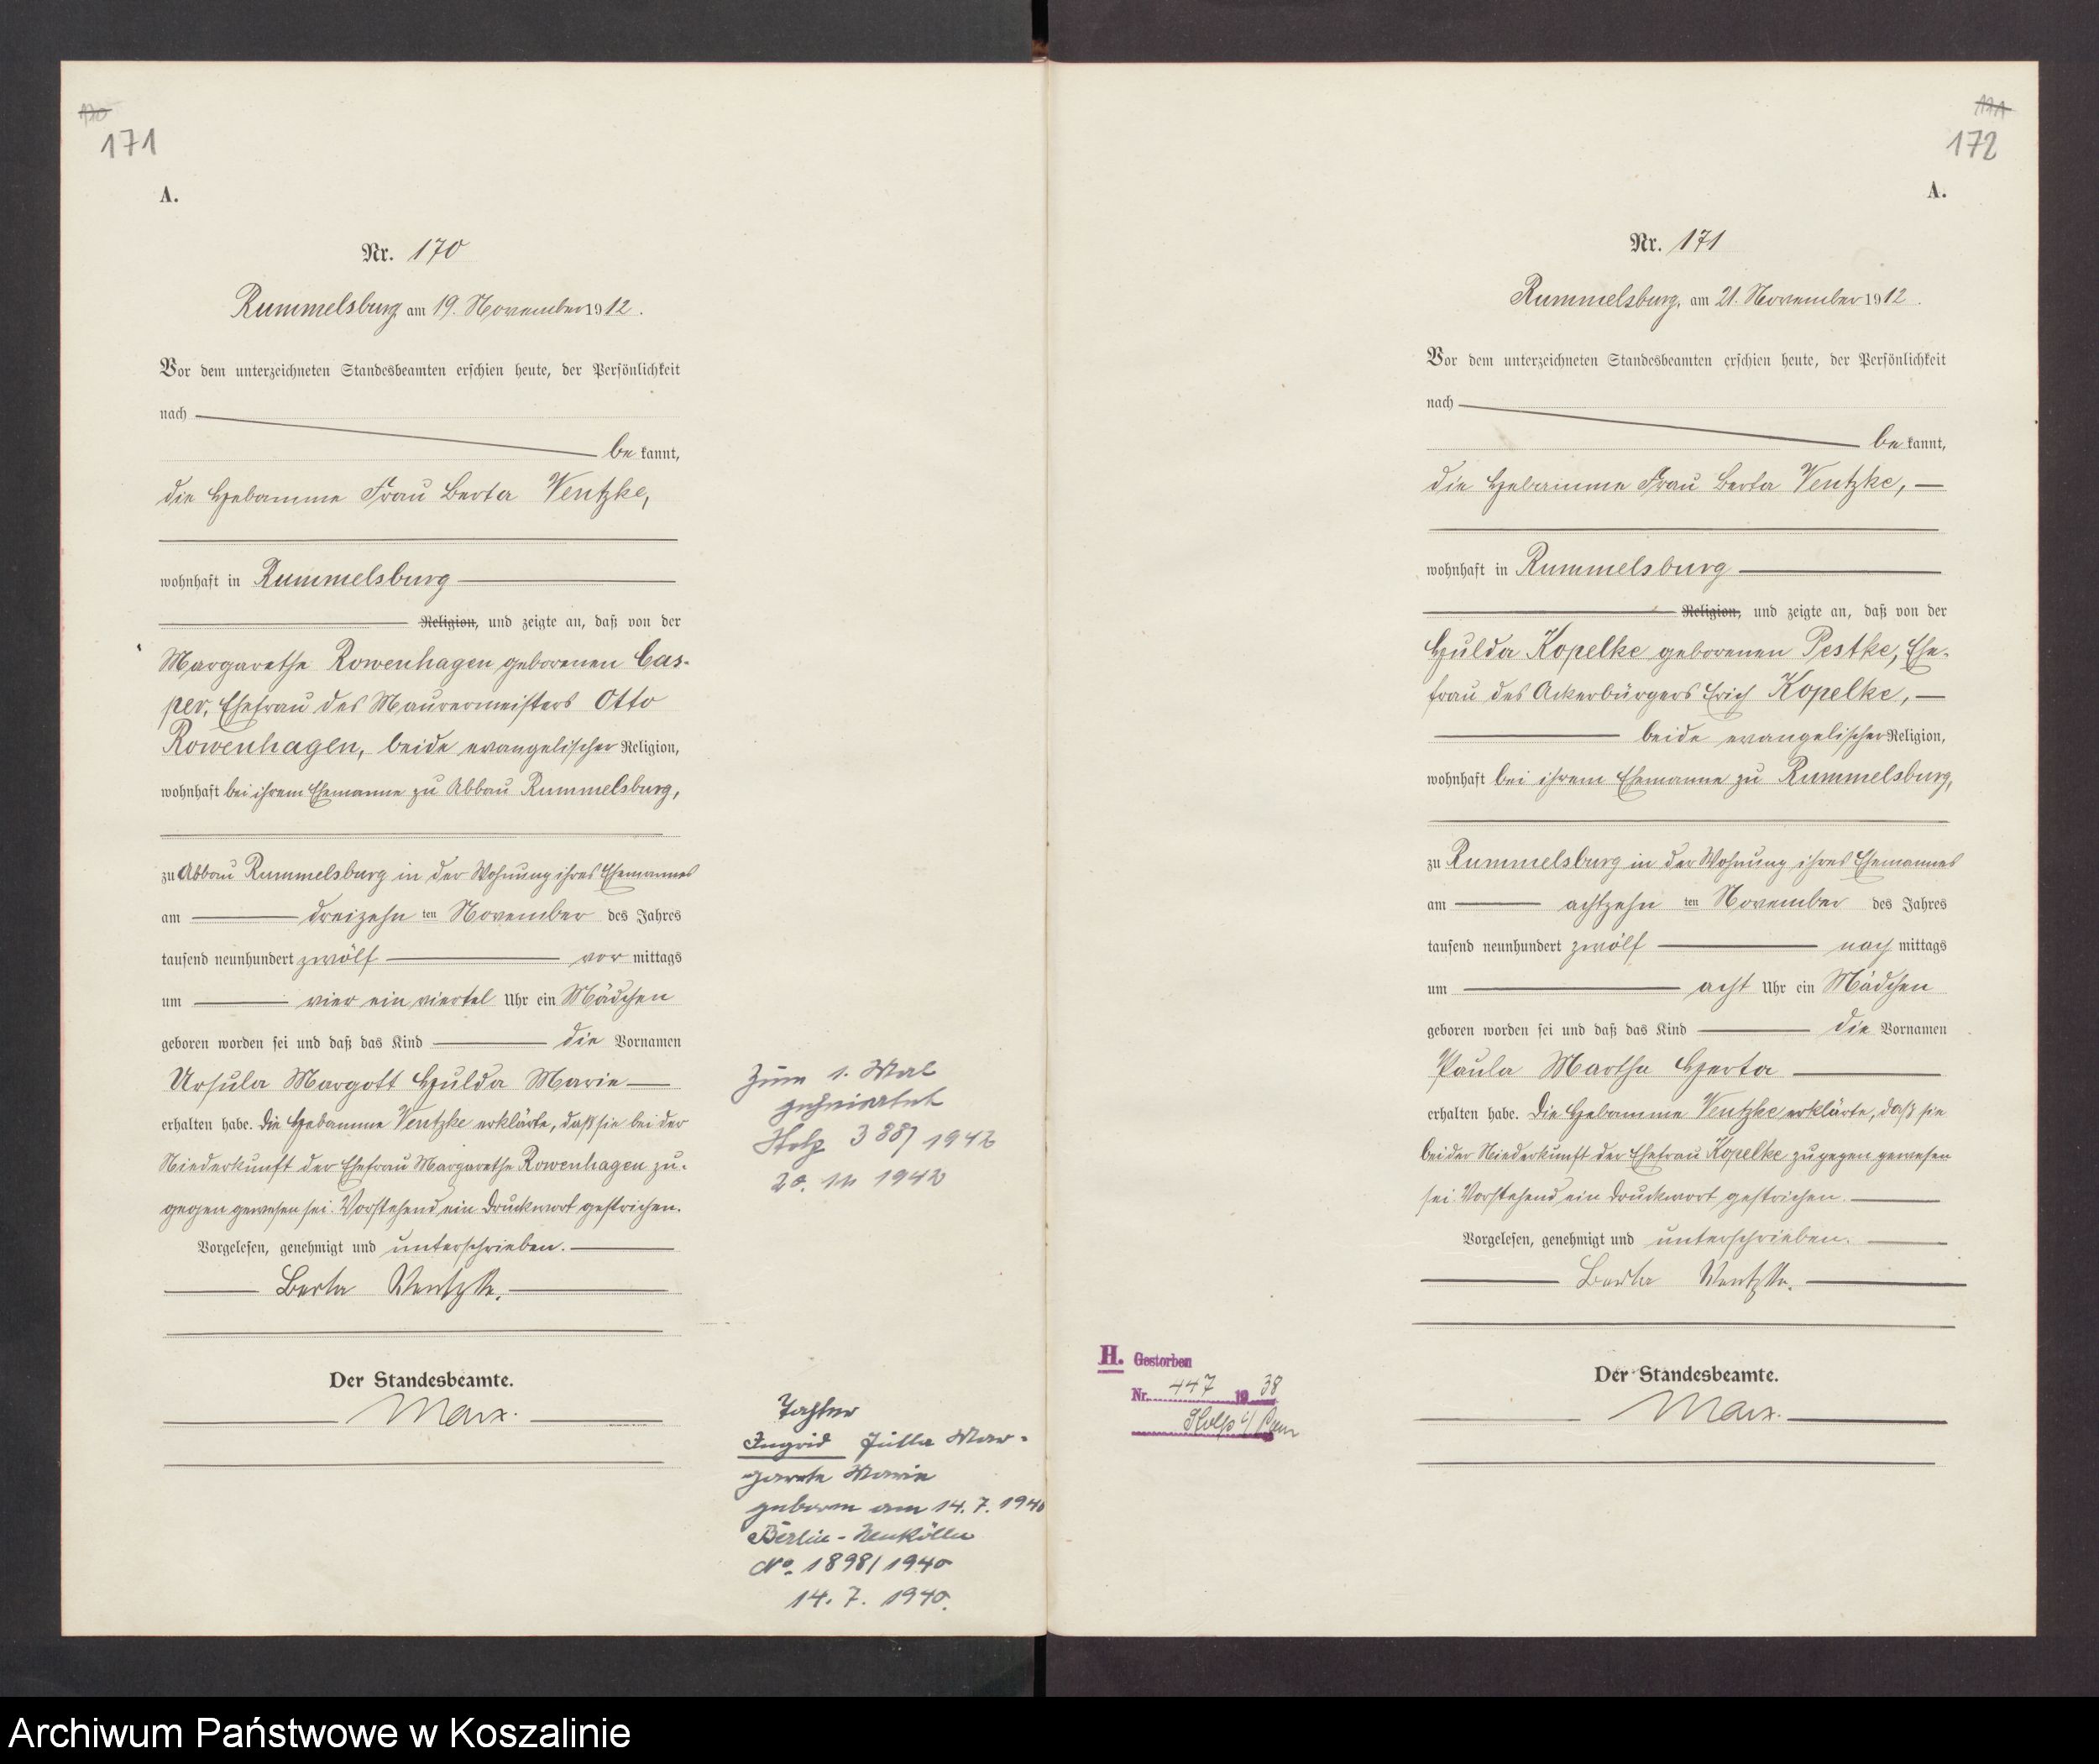 170
171
A.
Nr. 170
Rummelsburg am 19. November 1912.
Vor dem unterzeichneten Standesbeamten erschien heute, der Persönlichkeit
nach
be kannt,
die Hebamme Frau Berta Ventzke,
wohnhaft in Rummelsburg
Religion, und zeigte an, daß von der
Margarethe Rowenhagen geborenen Cas-
per, Ehefrau des Maurermeisters Otto
Rowenhagen, beide evangelischer Religion,
wohnhaft bei ihrem Ehemanne zu Abbau Rummelsburg,
zu Abbau Rummelsburg in der Wohnung ihres Ehemannes
am dreizehn ten November des Jahres
tausend neunhundert zwölf vor mittags
um vier ein viertel Uhr ein Mädchen
geboren worden sei und daß das Kind die Vornamen
Ursula Margott Hulda Marie
erhalten habe. Die Hebamme Ventzke erklärte, daß sie bei der
Niederkunft der Ehefrau Margarethe Rowenhagen zu-
gegen gewesen sei. Vorstehend ein Druckwort gestrichen.
Vorgelesen, genehmigt und unterschrieben.
Berta Ventzke.
Der Standesbeamte.
Marx.
Zum 1. Mal
geheiratet
1942
1942
Tochter
Ingrid Jutta Mar-
garete Marie
geboren am 14.7.1940
Berlin-Neukölln
No. 1898/1940
14.7.1940.
171
172
A.
Nr. 171
Rummelsburg, am 21. November 1912.
Vor dem unterzeichneten Standesbeamten erschien heute, der Persönlichkeit
nach
be kannt,
die Hebamme Frau Berta Ventzke,
wohnhaft in Rummelsburg
Religion, und zeigte an, daß von der
Hulda Kopelke geborenen Pestke, Ehe-
frau des Ackerbürgers Erich Kopelke,
beide evangelischer Religion,
wohnhaft bei ihrem Ehemanne zu Rummelsburg,
zu Rummelsburg in der Wohnung ihres Ehemannes
am achtzehn ten November des Jahres
tausend neunhundert zwölf nach mittags
um acht Uhr ein Mädchen
geboren worden sei und daß das Kind die Vornamen
Paula Martha Herta
erhalten habe. Die Hebamme Ventzke erklärte, daß sie
bei der Niederkunft der Ehefrau Kopelke zugegen gewesen
sei. Vorstehend ein Druckwort gestrichen.
Vorgelesen, genehmigt und unterschrieben.
Berta Ventzke.
Der Standesbeamte.
Marx.
H. Gestorben
Nr. 447 1938
Stolp i/Pom
Archiwum Państwowe w Koszalinie